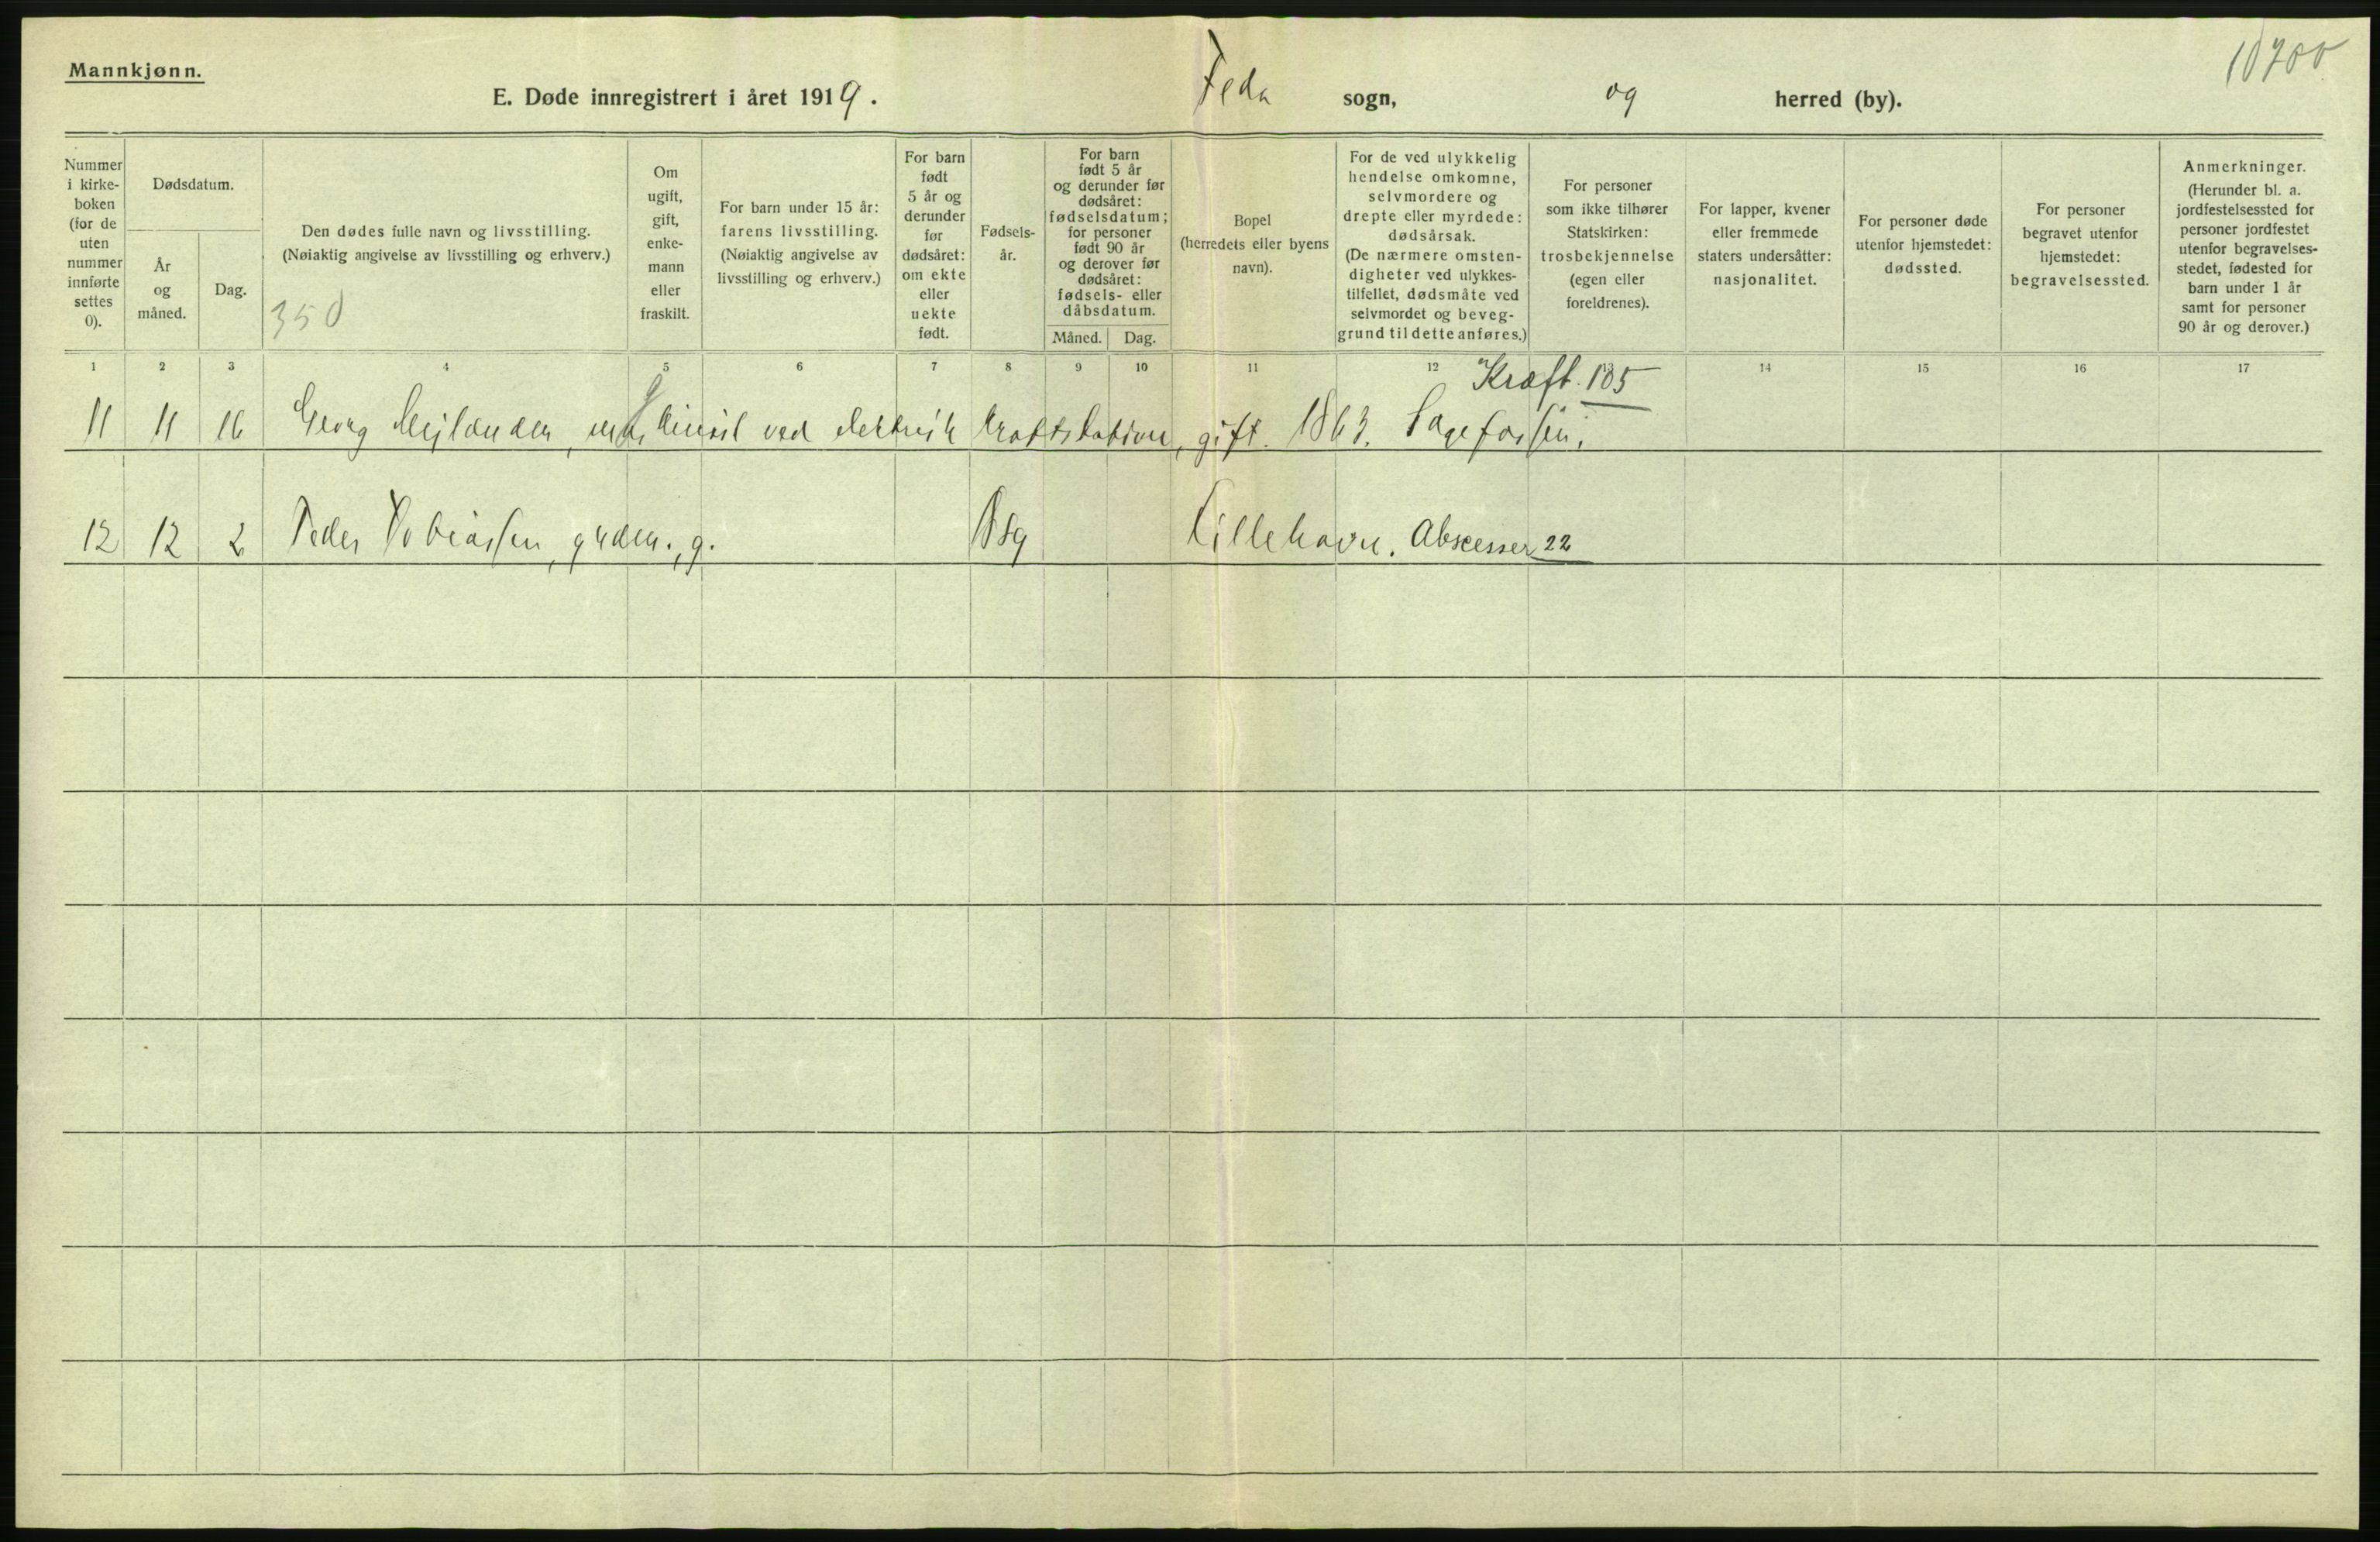 Mannkjønn.
10700
E. Døde innregistrert i året 1919. Feda sogn, og herred (by).
Nummer i kirke- boken (for de uten nummer innførte settes 0).
Dødsdatum.
År og måned.
Dag.
Den dødes fulle navn og livsstilling.
(Nøiaktig angivelse av livsstilling og erhverv.)
350
Om ugift, gift, enke- mann eller fraskilt.
For barn under 15 år: farens livsstilling.
(Nøiaktig angivelse av livsstilling og erhverv.)
For barn født 5 år og derunder før dødsåret: om ekte eller uekte født.
Fødsels- år.
For barn født 5 år og derunder før dødsåret: fødselsdatum; for personer født 90 år og derover før dødsåret: fødsels- eller dåbsdatum.
Måned. Dag.
Bopel (herredets eller byens navn).
For de ved ulykkelig hendelse omkomne, selvmordere og drepte eller myrdede: dødsårsak.
(De nærmere omsten- digheter ved ulykkes- tilfellet, dødsmåte ved selvmordet og beveg- grund til dette anføres.)
For personer som ikke tilhører Statskirken: trosbekjennelse (egen eller foreldrenes).
For lapper, kvener eller fremmede staters undersåtter: nasjonalitet.
For personer døde utenfor hjemstedet: dødssted.
For personer begravet utenfor hjemstedet: begravelsessted.
Anmerkninger.
(Herunder bl. a. jordfestelsessted for personer jordfestet utenfor begravelses- stedet, fødested for barn under 1 år samt for personer 90 år og derover.)
1 2 3 4 5 6 7 8 9 10 11 12 14 15 16 17
Kræft. 105
11 11 16 Georg Mejlænder, ved elektrisk kraftstation, gift. 1863. Sagefossen.
12 12 2 Peder Tobiassen, grdm., g. Lillehavn. Abscesser 22